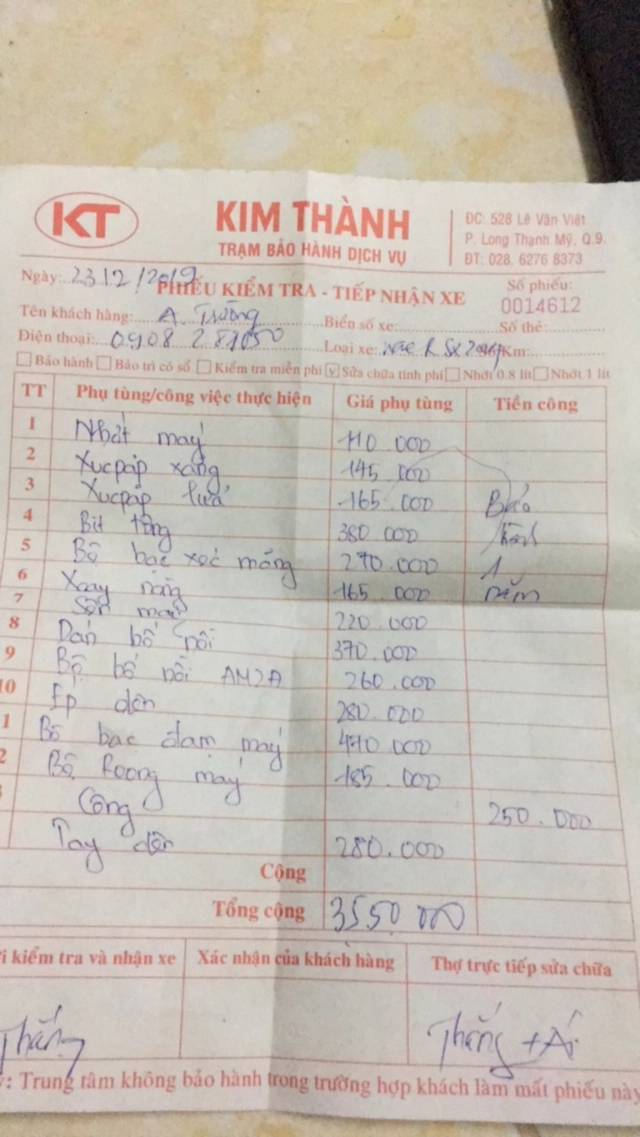 KT
KIM THÀNH
TRẠM BẢO HÀNH DỊCH VỤ
ĐC: 528 Lê Văn Việt
P. Long Thạnh Mỹ, Q.9.
ĐT: 028. 6276 8373
Ngày: 23 12 / 2019
PHIẾU KIỂM TRA - TIẾP NHẬN XE
Số phiếu:
0014612
Tên khách hàng: A. Trường Biển số xe: Số thẻ:
Điện thoại: 0908 281050 Loại xe: R Sx Km:
Bảo hành Bảo trì có sổ Kiểm tra miễn phí v Sửa chữa tính phí Nhớt 0.8 lít Nhớt 1 lít
TT Phụ tùng/công việc thực hiện Giá phụ tùng Tiền công
1 Nhớt máy 110.000
2 Xucpáp xăng 145.000
3 Xucpáp lửa 165.000 Bảo
4 Bít tông 380.000 hành
5 Bộ bạc xéc măng 270.000 1
6 Xoáy nòng 165.000 năm
7 Sơn máy 220.000
8 Dán bố nồi 370.000
9 Bộ bố nồi 260.000
10 Ép dên 280.000
1 Bộ bạc đạn máy 470.000
2 Bộ Roong máy 185.000
Công 250.000
Tay dên 280.000
Cộng
Tổng cộng 3550 000
i kiểm tra và nhận xe Xác nhận của khách hàng Thợ trực tiếp sửa chữa
Thắng Thắng + Ái
ý: Trung tâm không bảo hành trong trường hợp khách làm mất phiếu này